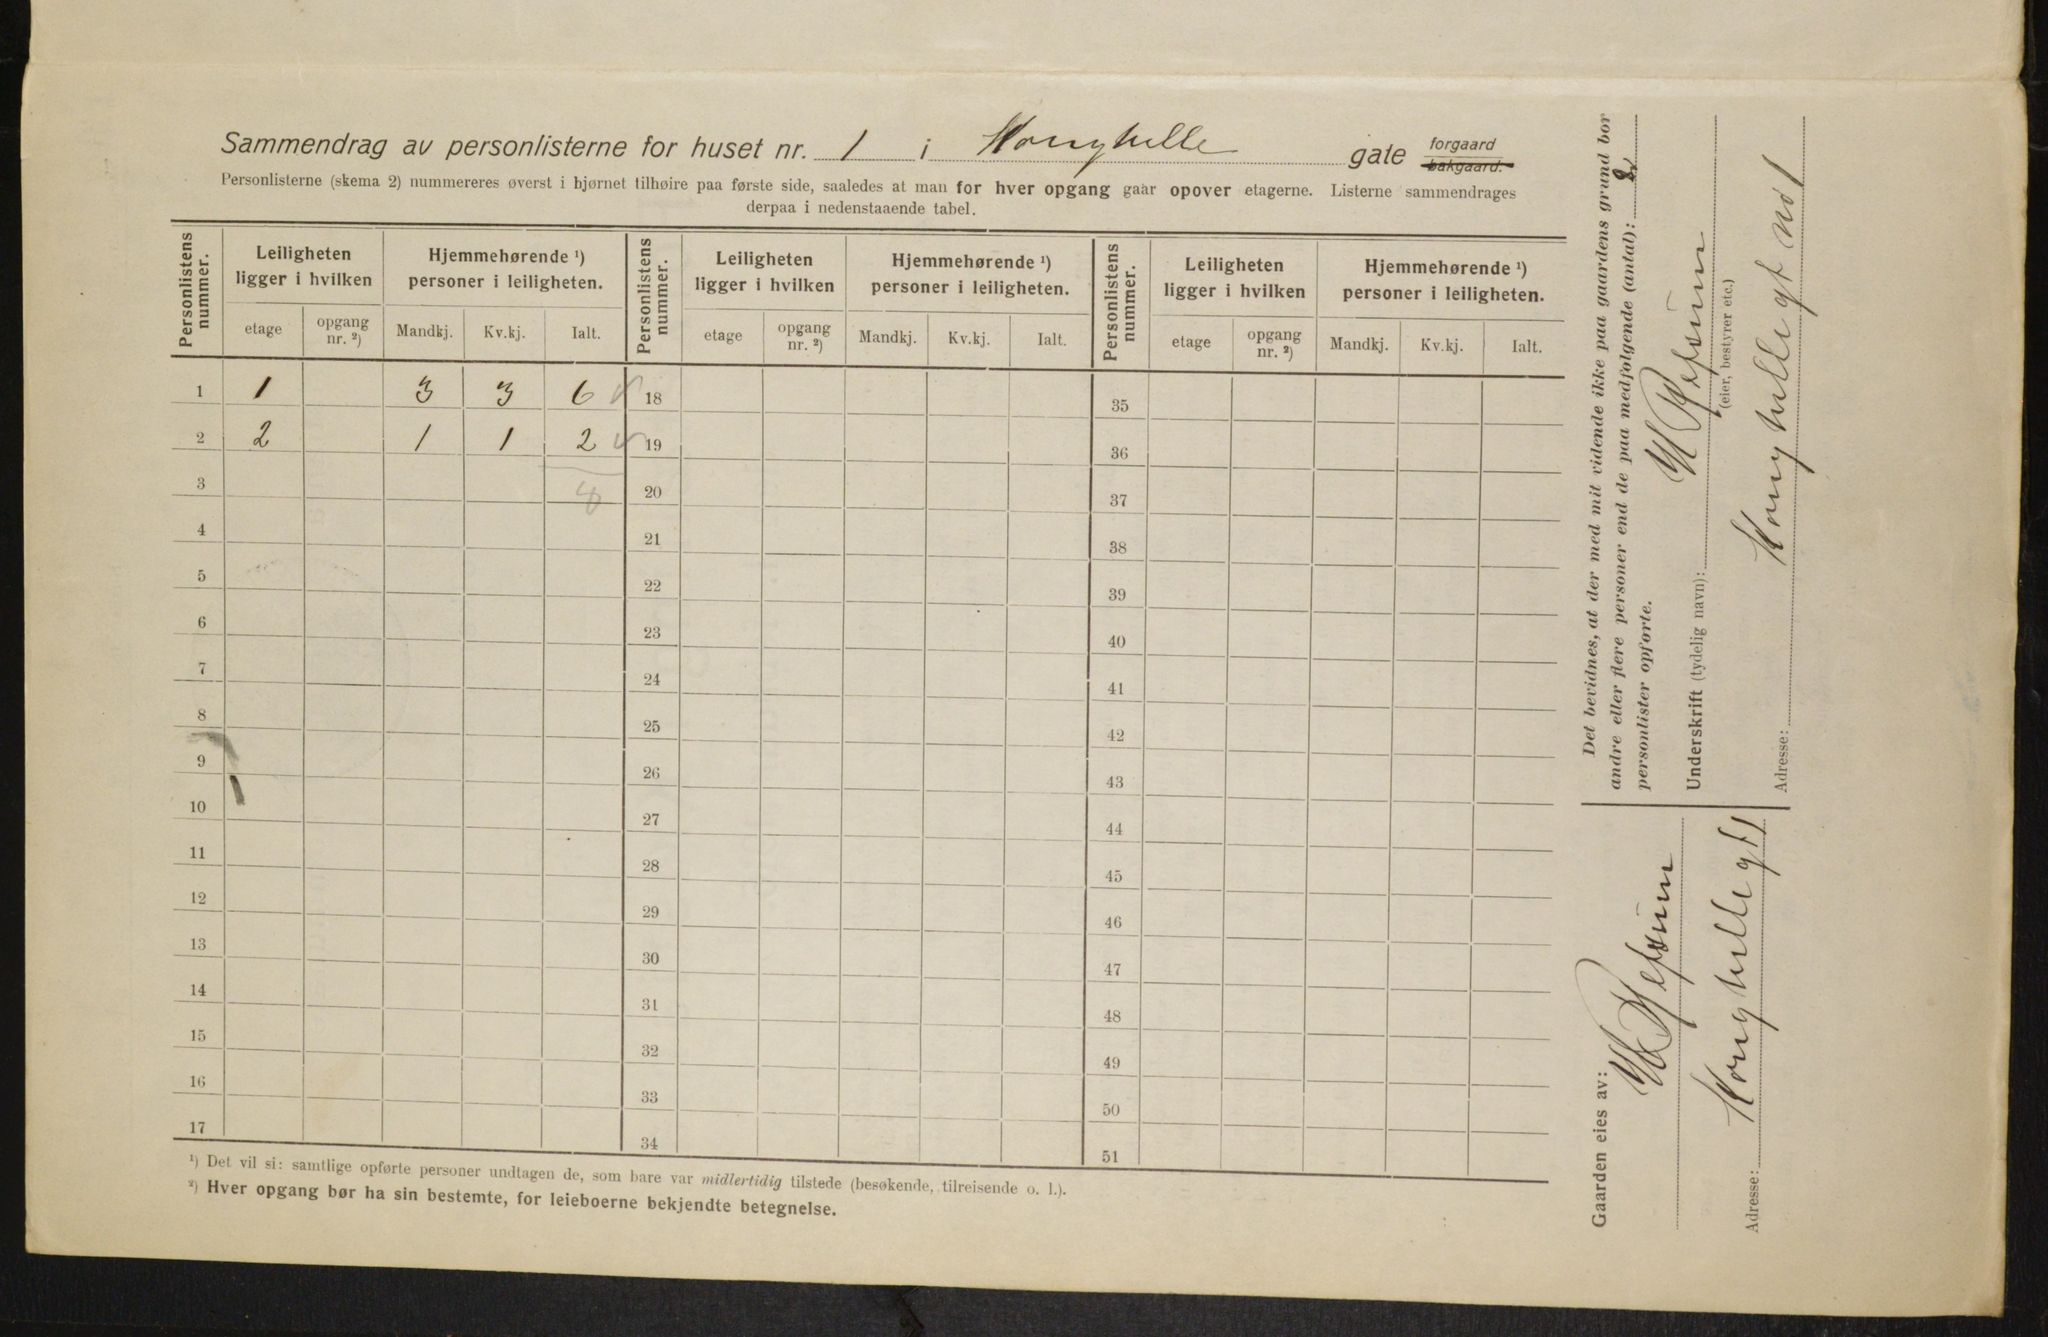 Sammendrag av personlisterne for huset nr. 1 i Konghelle gate forgaard bakgaard.
Personlisterne (skema 2) nummereres øverst i hjørnet tilhøire paa første side, saaledes at man for hver opgang gaar opover etagerne. Listerne sammendrages
derpaa i nedenstaaende tabel.
Personlistens nummer. Leiligheten ligger i hvilken Hjemmehørende ¹) personer i leiligheten. Personlistens nummer. Leiligheten ligger i hvilken Hjemmehørende ¹) personer i leiligheten. Personlistens nummer. Leiligheten ligger i hvilken Hjemmehørende ¹) personer i leiligheten.
etage opgang nr. ²) Mandkj. Kv.kj. Ialt. etage opgang nr. ²) Mandkj. Kv.kj. Ialt. etage opgang nr. ²) Mandkj. Kv.kj. Ialt.
1 1 3 3 6 18 35
2 2 1 1 2 19 36
3 8 20 37
4 21 38
5 22 39
6 23 40
7 24 41
8 25 42
9 26 43
10 27 44
11 28 45
12 29 46
13 30 47
14 31 48
15 32 49
16 33 50
17 34 51
¹) Det vil si: samtlige opførte personer undtagen de, som bare var midlertidig tilstede (besøkende, tilreisende o. l.).
²) Hver opgang bør ha sin bestemte, for leieboerne bekjendte betegnelse.
Det bevidnes, at der med mit vidende ikke paa gaardens grund bor
andre eller flere personer end de paa medfølgende (antal): 2
personlister opførte.
Underskrift (tydelig navn):
(eier, bestyrer etc.)
Adresse: Konghelle gt No 1
Gaarden eies av:
Adresse: Konghelle gt 1